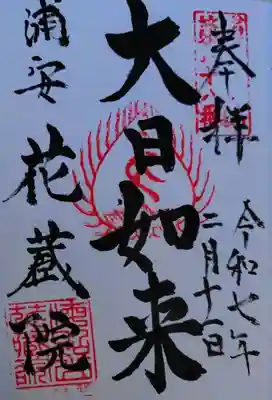 奉拝
令和七年
二月十一日
大日如来
浦安
花蔵院